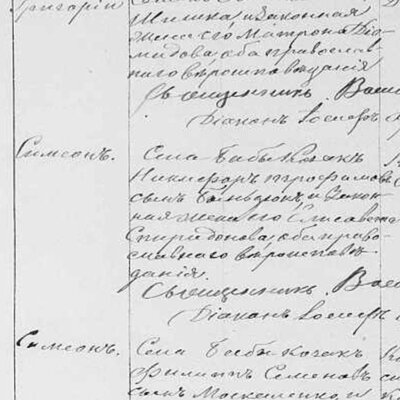 Григорій
Шишка и законная
жена его Матрона Діо-
мидова, оба православ-
наго вѣроисповѣданія
Священникъ Васи
Діаконъ Іосифъ
Симеонъ. Села Бабы Козакъ
Никифоръ Трофимовъ
сынъ и закон-
ная жена его Елисавета
Спиридонова, оба право-
славнаго вѣроисповѣ-
данія.
Священникъ Васи
Діаконъ Іосифъ
Симеонъ. Села Бабы Козакъ
Филиппъ Семеновъ
сынъ Москаленко, и